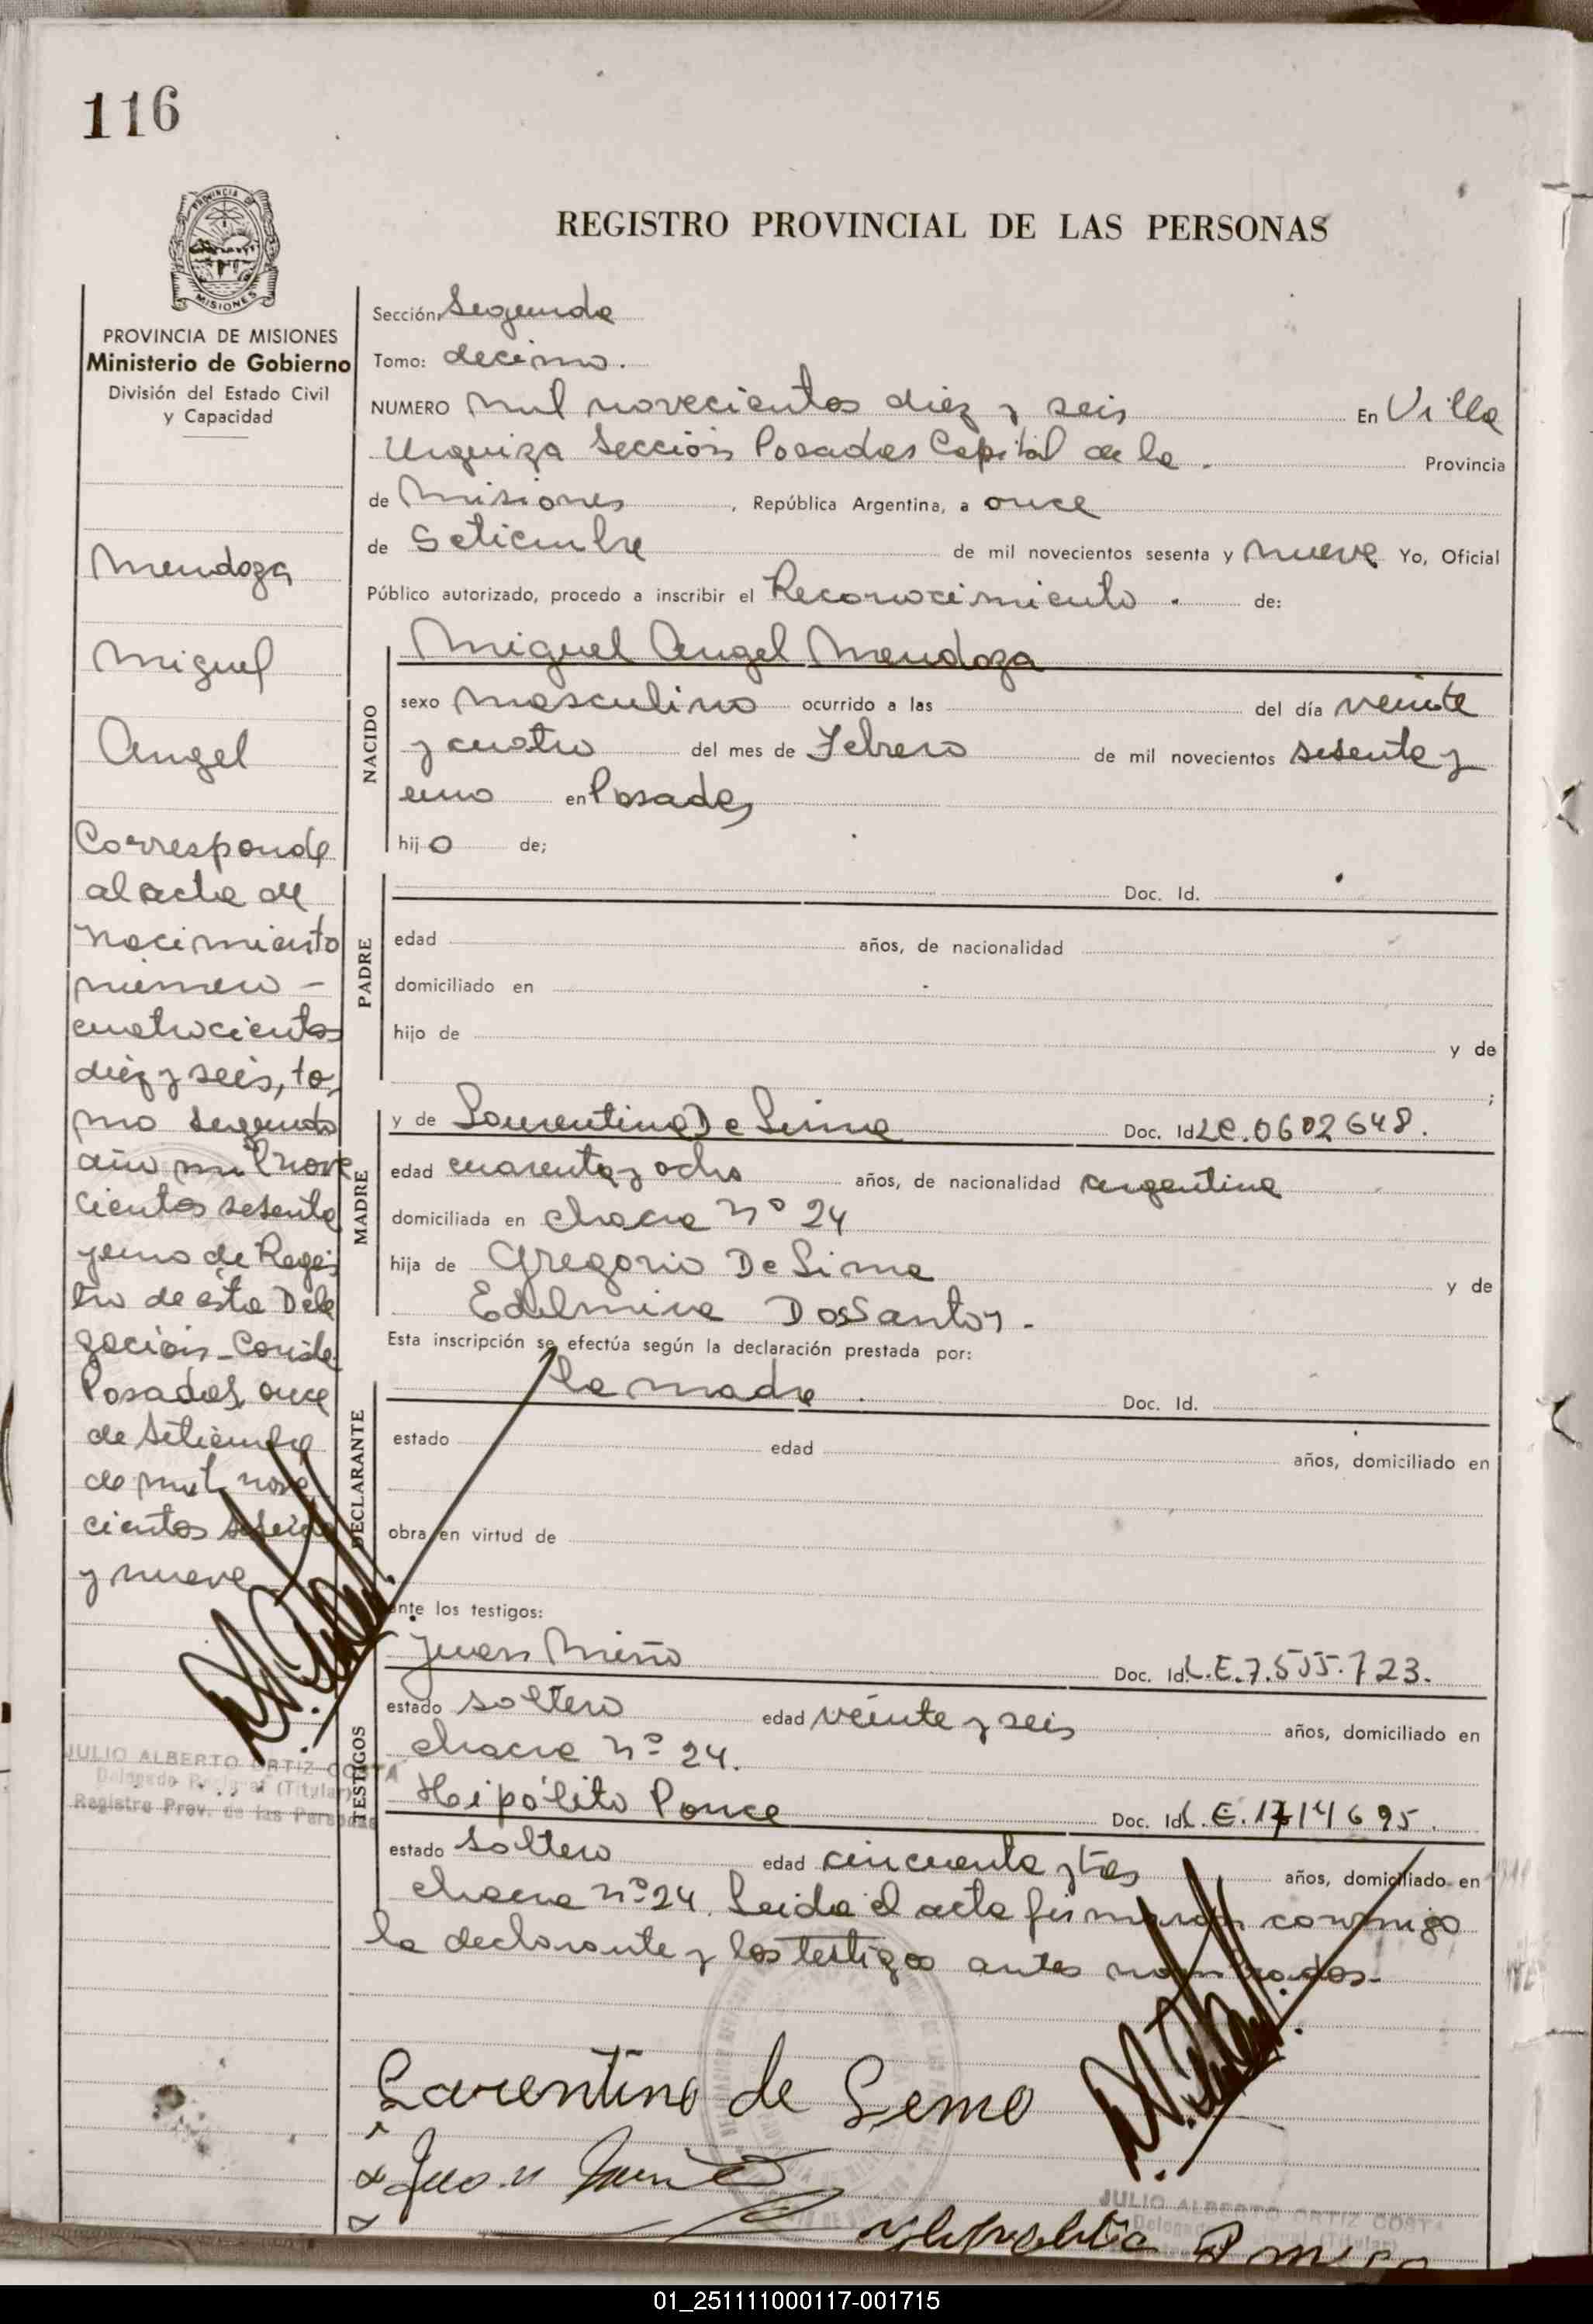 116
PROVINCIA
MISIONES
REGISTRO PROVINCIAL DE LAS PERSONAS
PROVINCIA DE MISIONES
Ministerio de Gobierno
División del Estado Civil
y Capacidad
Mendoza
Miguel
Angel
Corresponde
al acta de
Nacimiento
número -
cuatrocientos
diez y seis, to,
mo segundo
año mil nove
cientos sesenta
y uno de Regis
tro de esta Dele
gación - Conste
Posadas, once
de Setiembre
de mil nove
cientos sesenta
y nueve
JULIO ALBERTO ORTIZ COSTA
Delegado Regional (Titular)
Registro Prov. de las Personas
Sección: Segunda
Tomo: decimo.
NUMERO Mil novecientos diez y seis En Villa
Urquiza Sección Posadas Capital de la . Provincia
de Misiones , República Argentina, a once
de Setiembre de mil novecientos sesenta y nueve Yo, Oficial
Público autorizado, procedo a inscribir el Reconocimiento . de:
NACIDO
Miguel Angel Mendoza
sexo masculino ocurrido a las del día veinte
y cuatro del mes de Febrero de mil novecientos sesenta y
uno en Posadas
hij o de;
PADRE
Doc. Id.
edad años, de nacionalidad
domiciliado en
hijo de y de
;
MADRE
y de Laurentina De Lima Doc. Id LC. 0602648.
edad cuarenta y ocho años, de nacionalidad argentina
domiciliada en chacra nº 24
hija de Gregorio De Lima y de
Edelmira DosSantos -
Esta inscripción se efectúa según la declaración prestada por:
DECLARANTE
La madre . Doc. Id.
estado edad años, domiciliado en
obra en virtud de
ante los testigos:
TESTIGOS
Juan Miño Doc. Id. L.E. 7.555.723.
estado soltero edad veinte y seis años, domiciliado en
chacra nº 24.
Hipólito Ponce Doc. Id L.E. 1714695.
estado soltero edad cincuenta y tres años, domiciliado en
chacra nº 24. Leida el acta firmaron conmigo
la declarante y los testigos antes nombrados-
Laurentino de Lemo
Juan
JULIO ALBERTO ORTIZ COSTA
Delegado Regional (Titular)
01_251111000117-001715